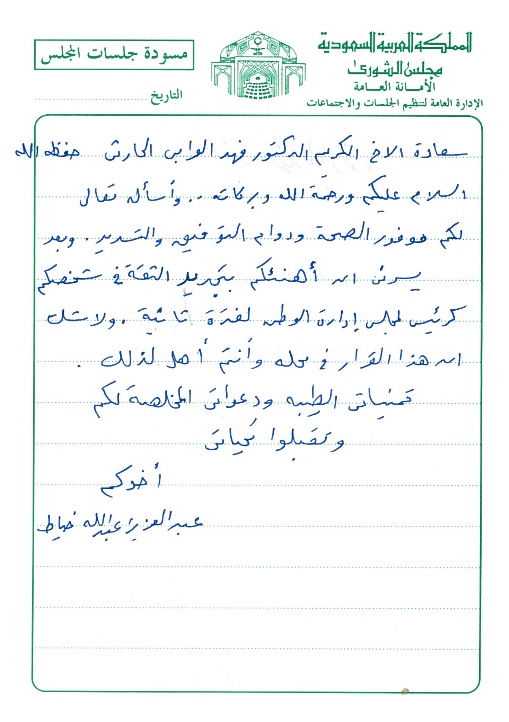 المملكة العربية السعودية
مجلس الشورى
الأمانة العامة
الإدارة العامة لتنظيم الجلسات والاجتماعات
مسودة جلسات المجلس
التاريخ
سعادة الاخ الكريم الدكتور فهد الحارثي حفظه الله
السلام عليكم ورحمة الله وبركاته .. وأسأله تعالى
لكم موفور الصحة ودوام التوفيق والتسديد . وبعد
يسرني ان أهنئكم بتجديد الثقة في شخصكم
كرئيس لمجلس إدارة الوطن لفترة ثانية . ولا شك
ان هذا القرار في محله وأنتم أهل لذلك .
تمنياتي الطيبه ودعواتي المخلصة لكم
وتقبلوا تحياتي
أخوكم
عبدالعزيز عبدالله خياط